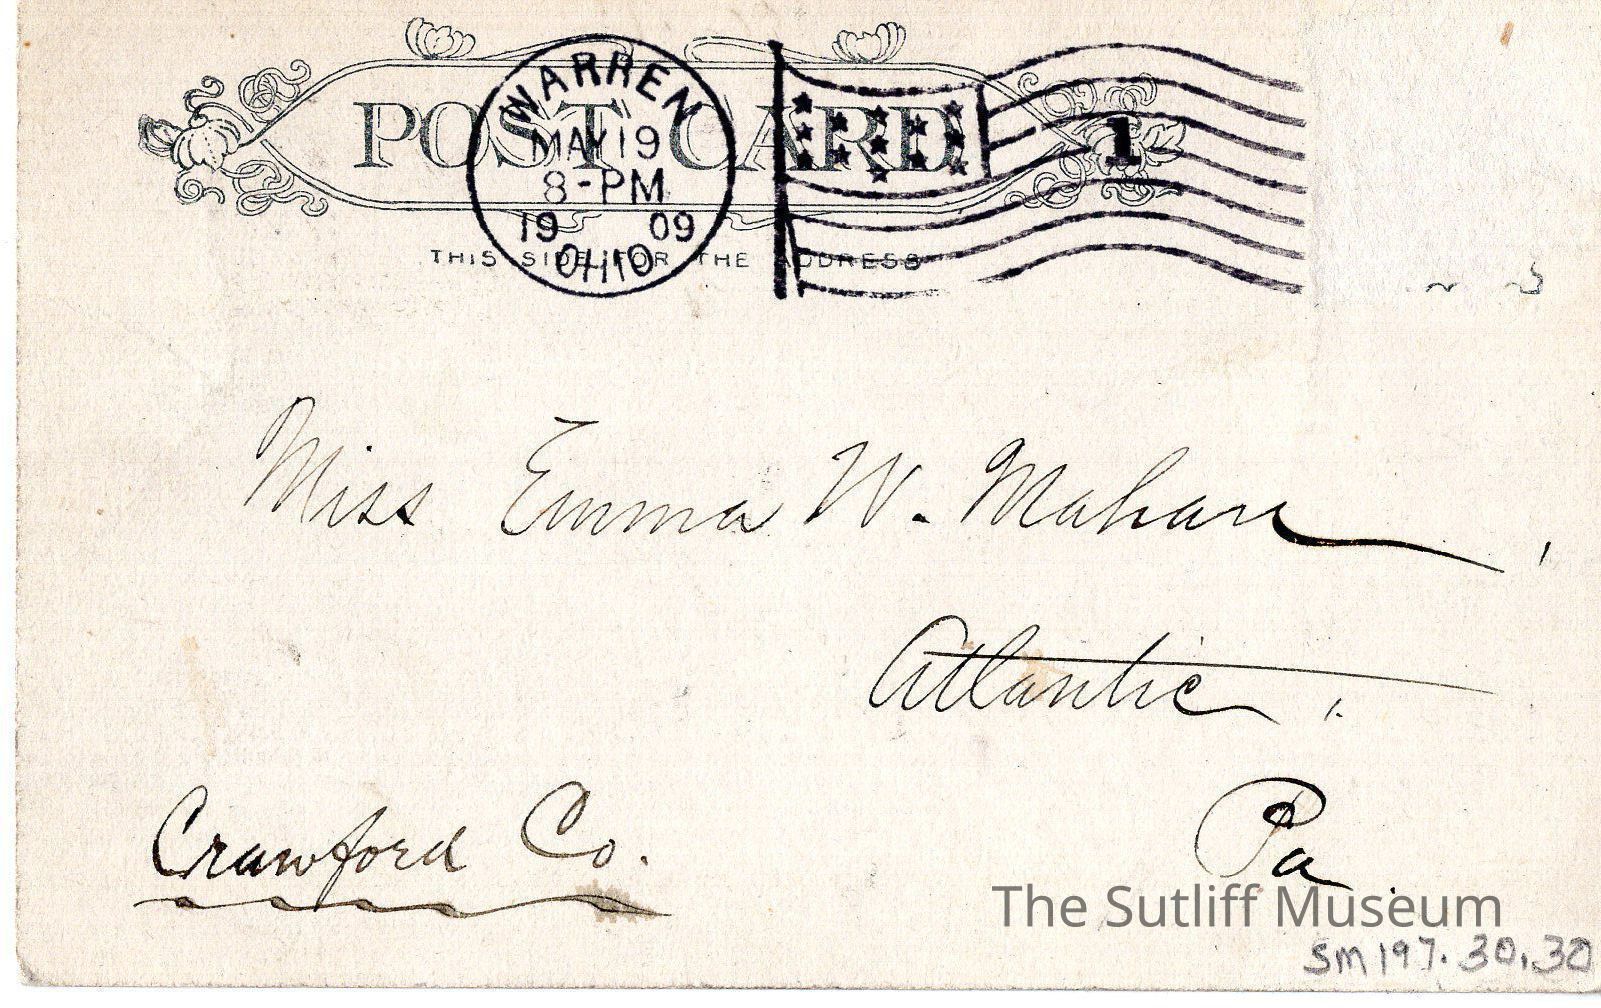 POST CARD
WARREN
MAY 19
8-PM
19 09
OHIO
1
THIS SIDE FOR THE ADDRESS
Miss Emma W. Mahan,
Atlantic,
Crawford Co.
Pa.
The Sutliff Museum
SM197.30.30